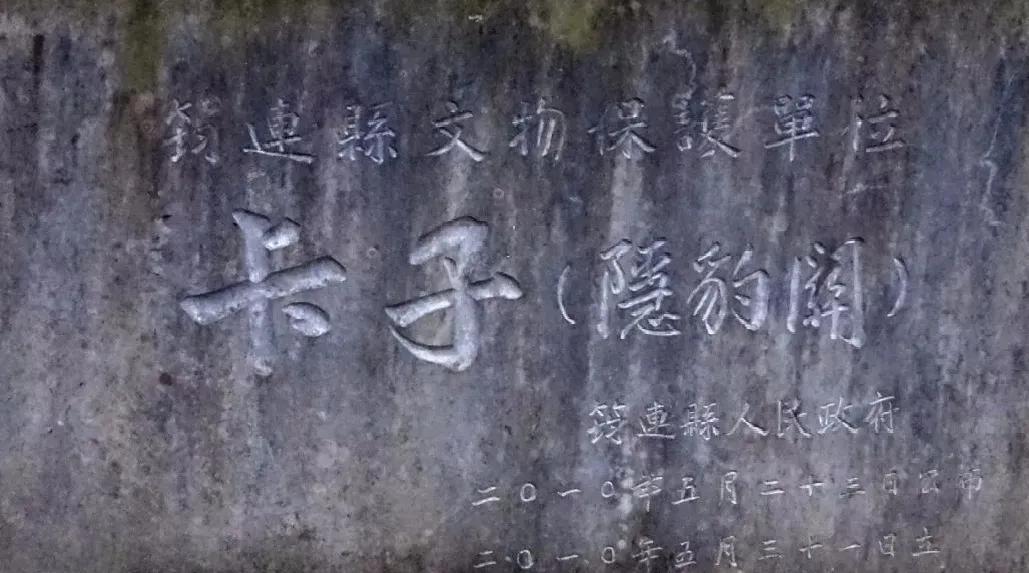 筠連縣文物保護單位
卡子(隱豹關)
筠連縣人民政府
二〇一〇年五月二十三日公布
二〇一〇年五月三十一日立